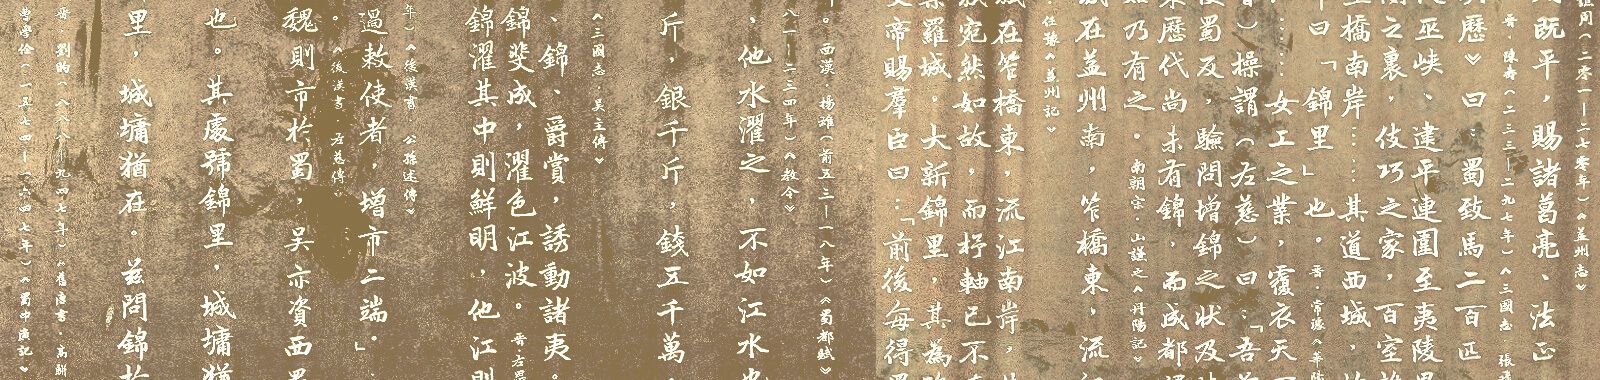 譙周（二零一—二七零年）《益州志》
既平，賜諸葛亮、法正
晉·陳壽（二三三—二九七年）《三國志·張
歷》曰：蜀致馬二百匹
巫峽、建平連圍至夷陵
之裏，伎巧之家，百室
橋南岸……其道西城，故
曰「錦里」也。晉·常璩《華陽
……女工之業，覆衣天下
）操謂（左慈）曰：「吾前
使蜀反，驗問增錦之狀及
歷代尚未有錦，而成都
乃有之。南朝宗·山謹之《丹陽記》
在益州南，笮橋東，流江
任豫《益州記》
在笮橋東，流江南岸，
宛然如故，而杼軸已不
羅城。大新錦里，其為
文帝賜羣臣曰：「前後每得蜀
。西漢·楊雄（前五三—一八年）《蜀都賦》
八一—二三四年）《教令》
、他水濯之，不如江水也
斤，銀千斤，錢五千萬，
《三國志·吳主傳》
、錦、爵賞，誘動諸夷。
錦斐成，濯色江波。晉左思
錦濯其中則鮮明，他江則
年）《後漢書·公孫述傳》
過敕使者，增市二端。」
《後漢書·左慈傳》
魏則市於蜀，吳亦資西蜀
也。其處號錦里，城墉猶
里，城墉猶在。茲問錦於
晉·劉昫（八八八—九四七年）《舊唐書·高駢
曹學佺（一五七四—一六四七年）《蜀中廣記》